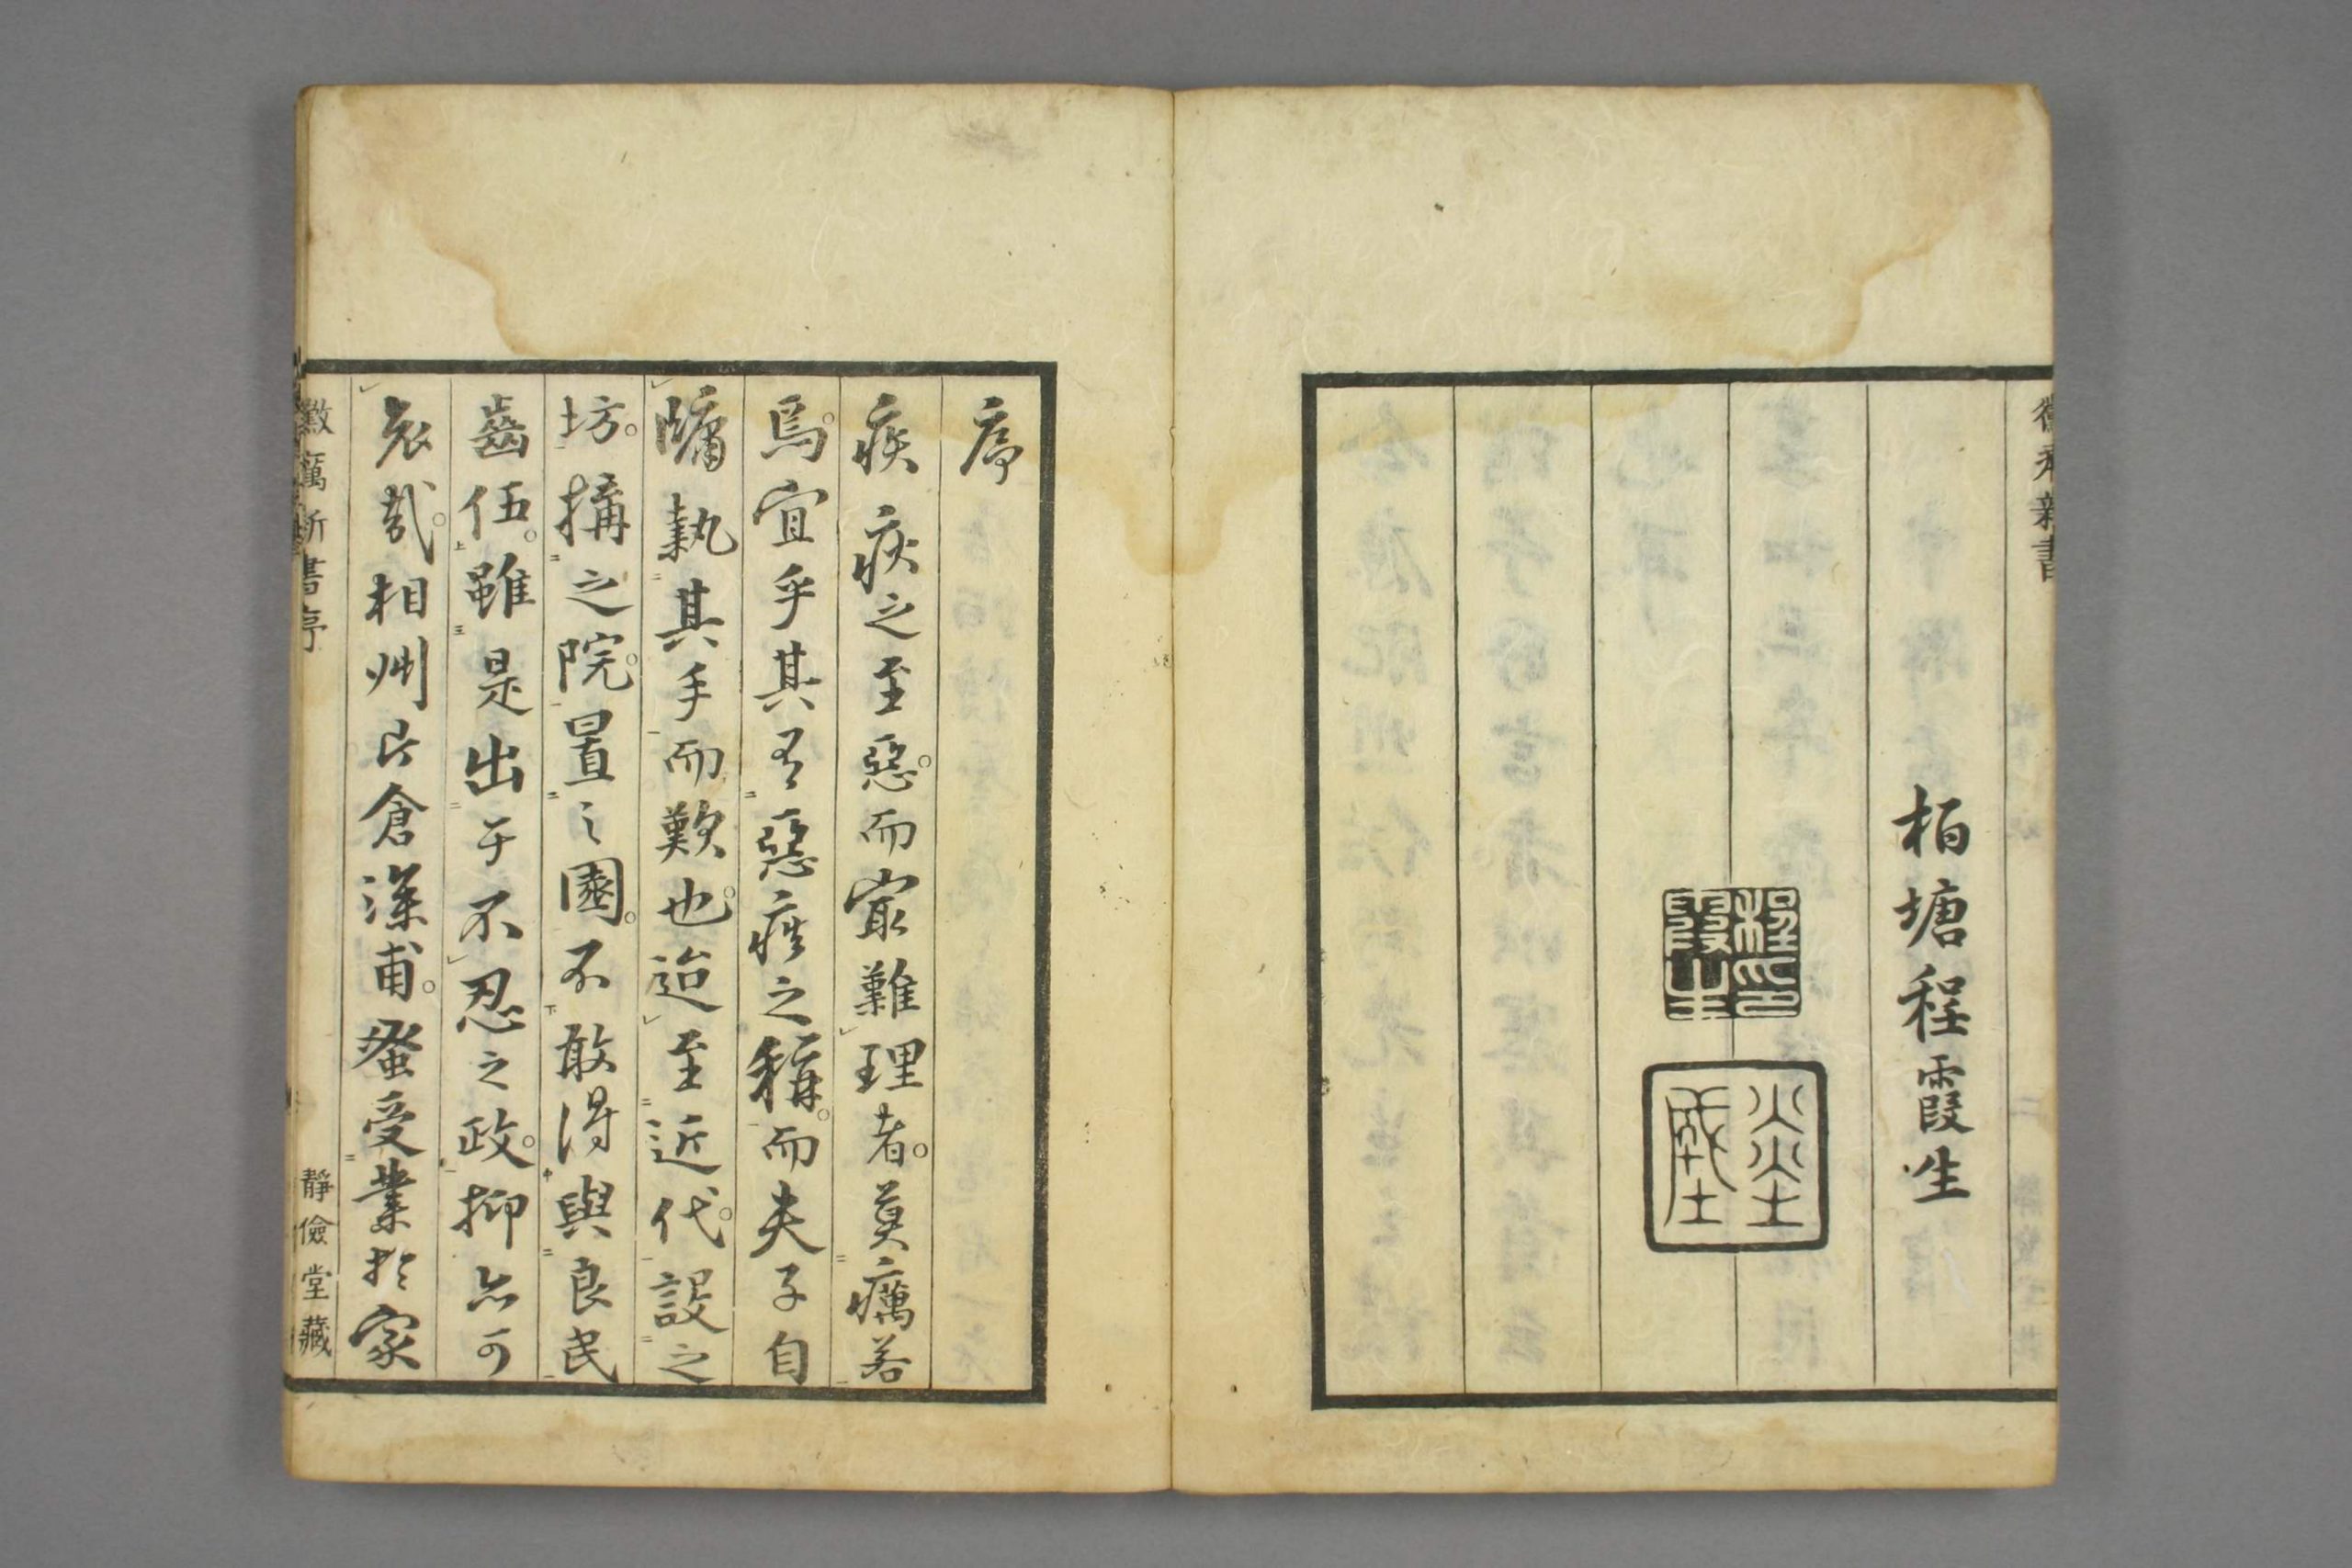 新書
柏塘程霞生
程印霞生
序
疾疢之至惡而冣難理者莫癘若
焉宜乎其有惡疾之稱而夫子自
牖執其手而歎也迨至近代設之
坊搆之院置之園不敢得與良民
齒伍雖是出于不忍之政抑亦可
哀哉相州片倉深甫蚤受業於家
黴癘新書序
靜儉堂藏